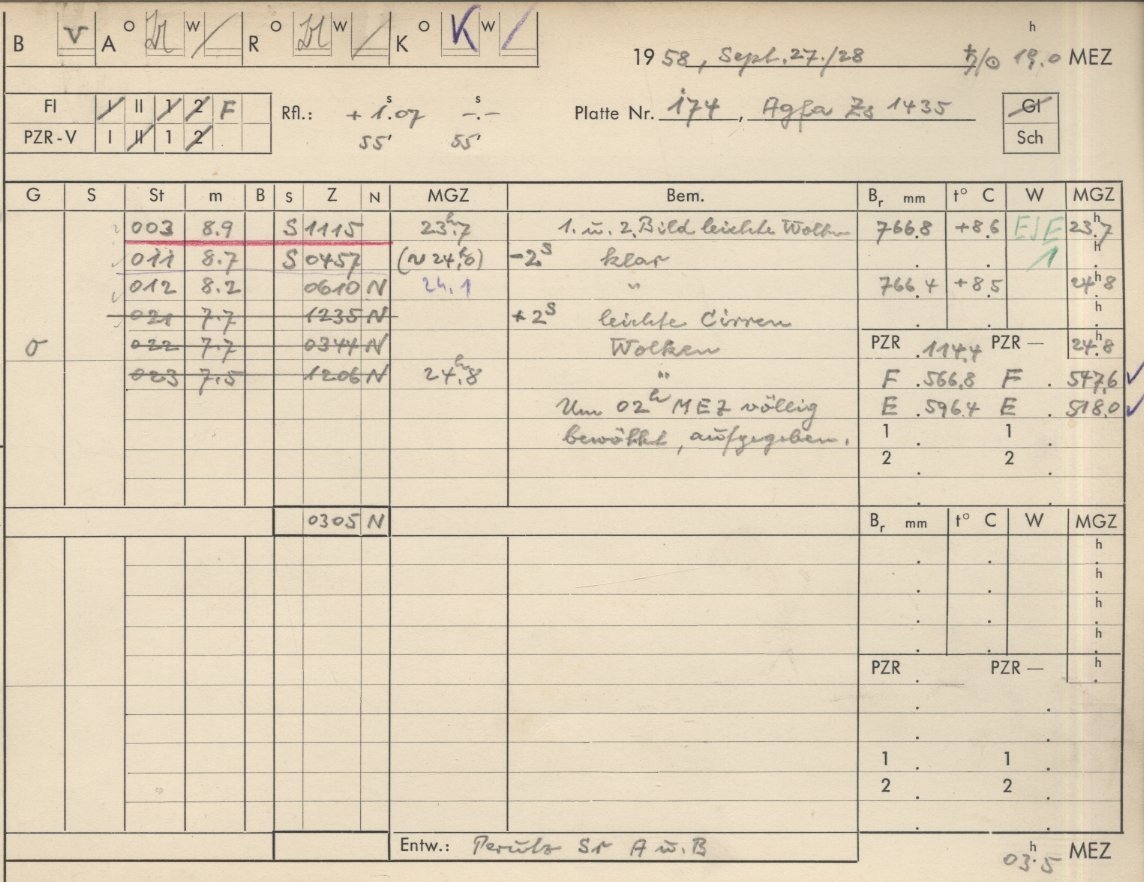 B V A O W R O W K O K W
19 58, Sept. 27./28 ♄/☉ 19.0 h MEZ
FI I II 1 2 F Rfl.: + 1.07 s -.- s Platte Nr. 174, Agfa Zs 1435 Gl
PZR-V I II 1 2 55' 55' Sch
G S St m B S Z N MGZ Bem. Br mm t° C W MGZ
003 8.9 S 1115 23h.7 1. u. 2. Bild leichte Wolken 766.8 +8.6 E/E 23h.7
011 8.7 S 0457 (~ 24h.0) -2s klar 1 h
012 8.2 0610 N 24.1 " 766.4 +8.5 24h.8
021 7.7 1235 N +2s leichte Cirren h
σ 022 7.7 0344 N Wolken PZR 1144 PZR — 24h.8
023 7.5 1206 N 24h.8 " F 566.8 F 547.6 ✓
Um 02h MEZ völlig E 596.4 E 518.0 ✓
bewölkt, aufgegeben. 1 1
2 2
0305 N Br mm t° C W MGZ
h
h
h
h
PZR PZR — h
1 1
2 2
Entw.: Perutz Sr A u. B 03.5 h MEZ